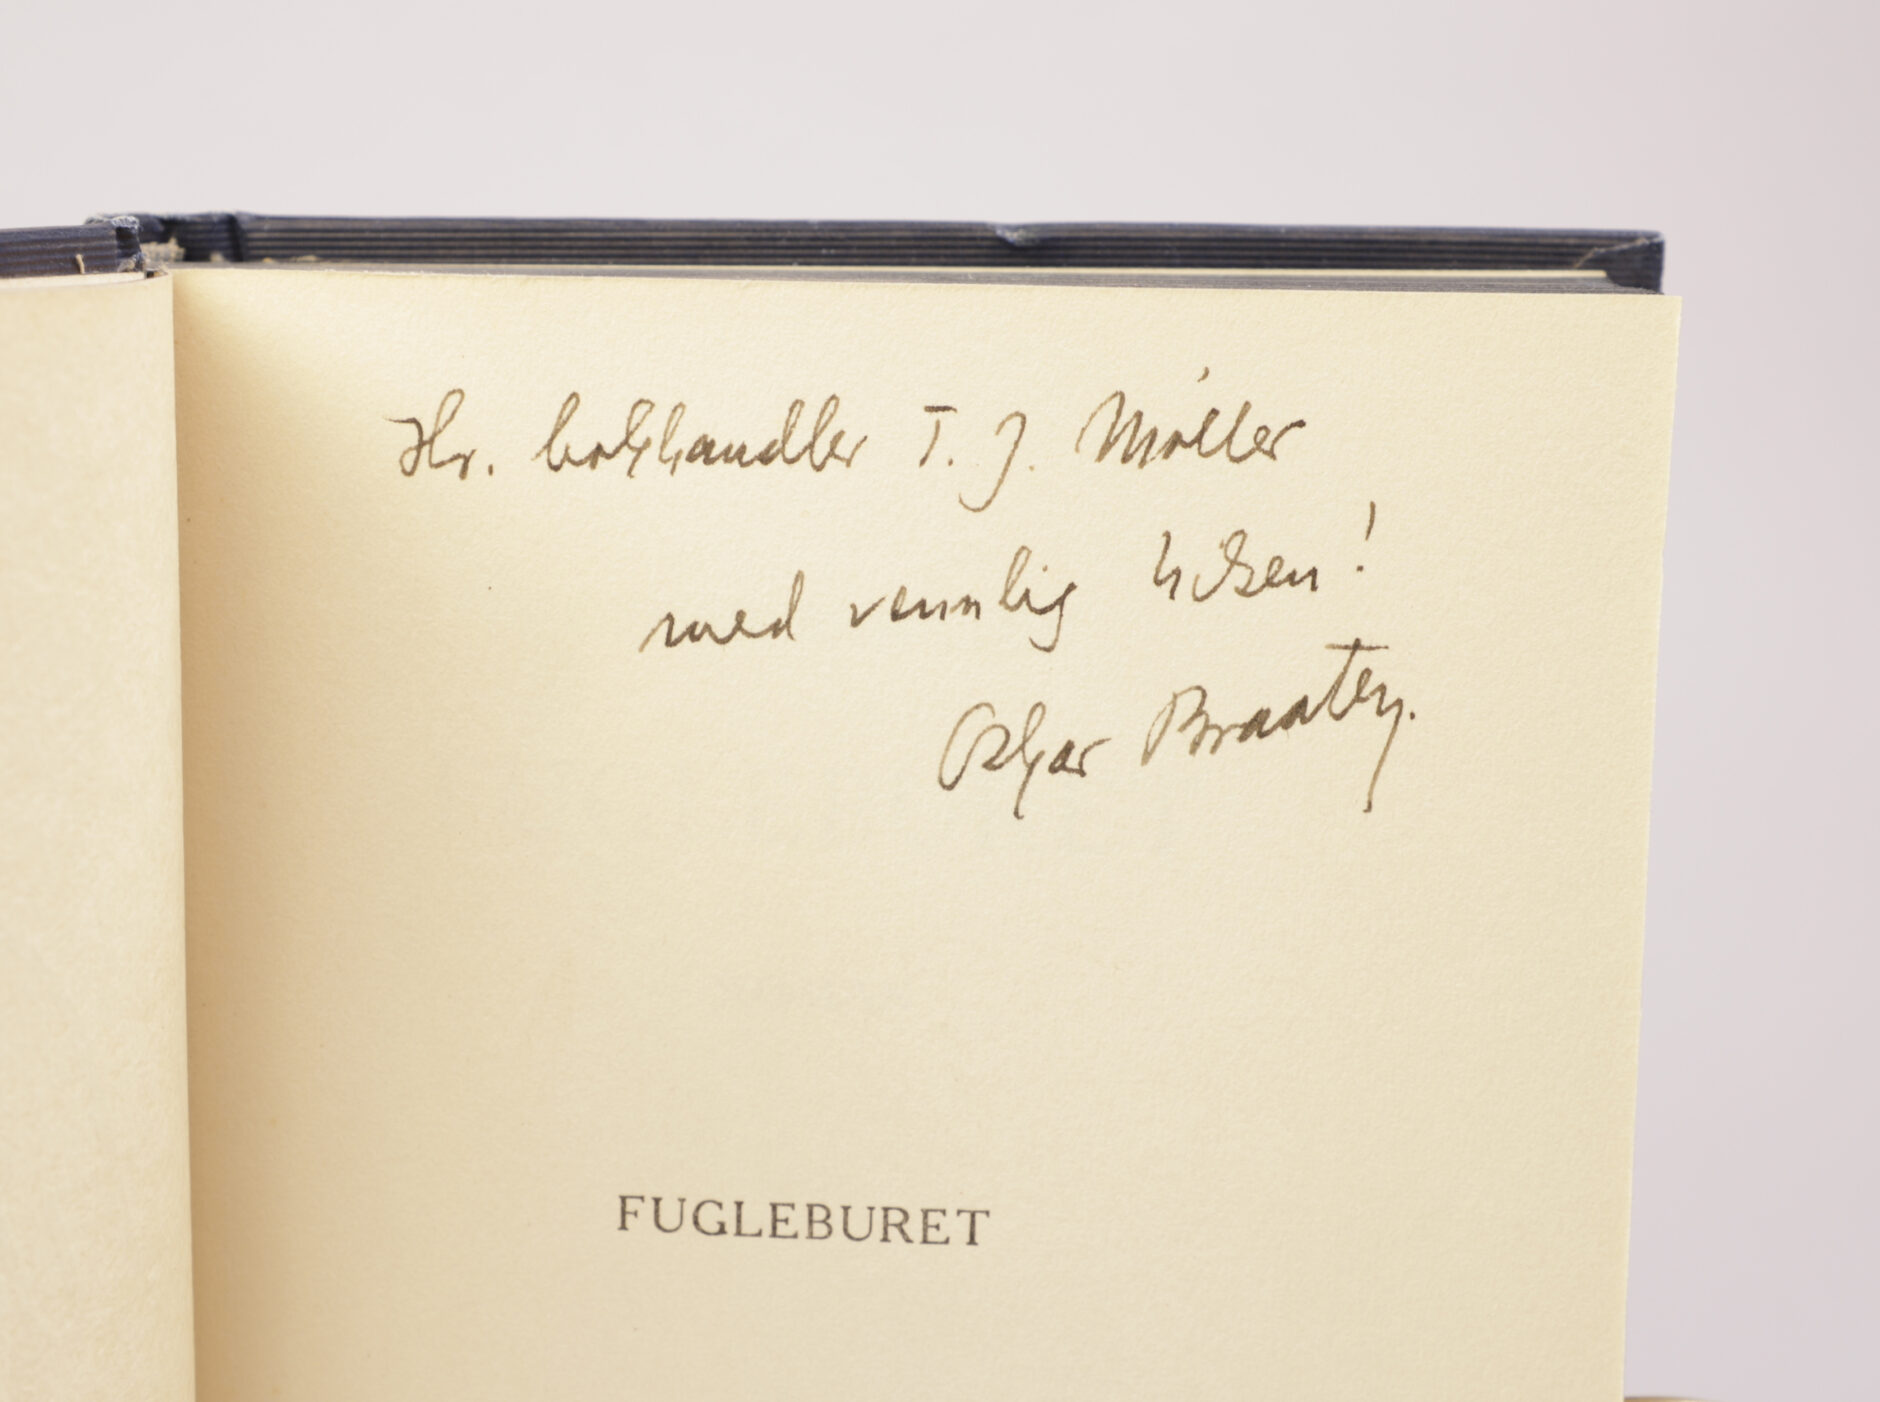 Hr. bokhandler T. J. Möller
med vennlig hilsen!
Oskar Braaten.
FUGLEBURET